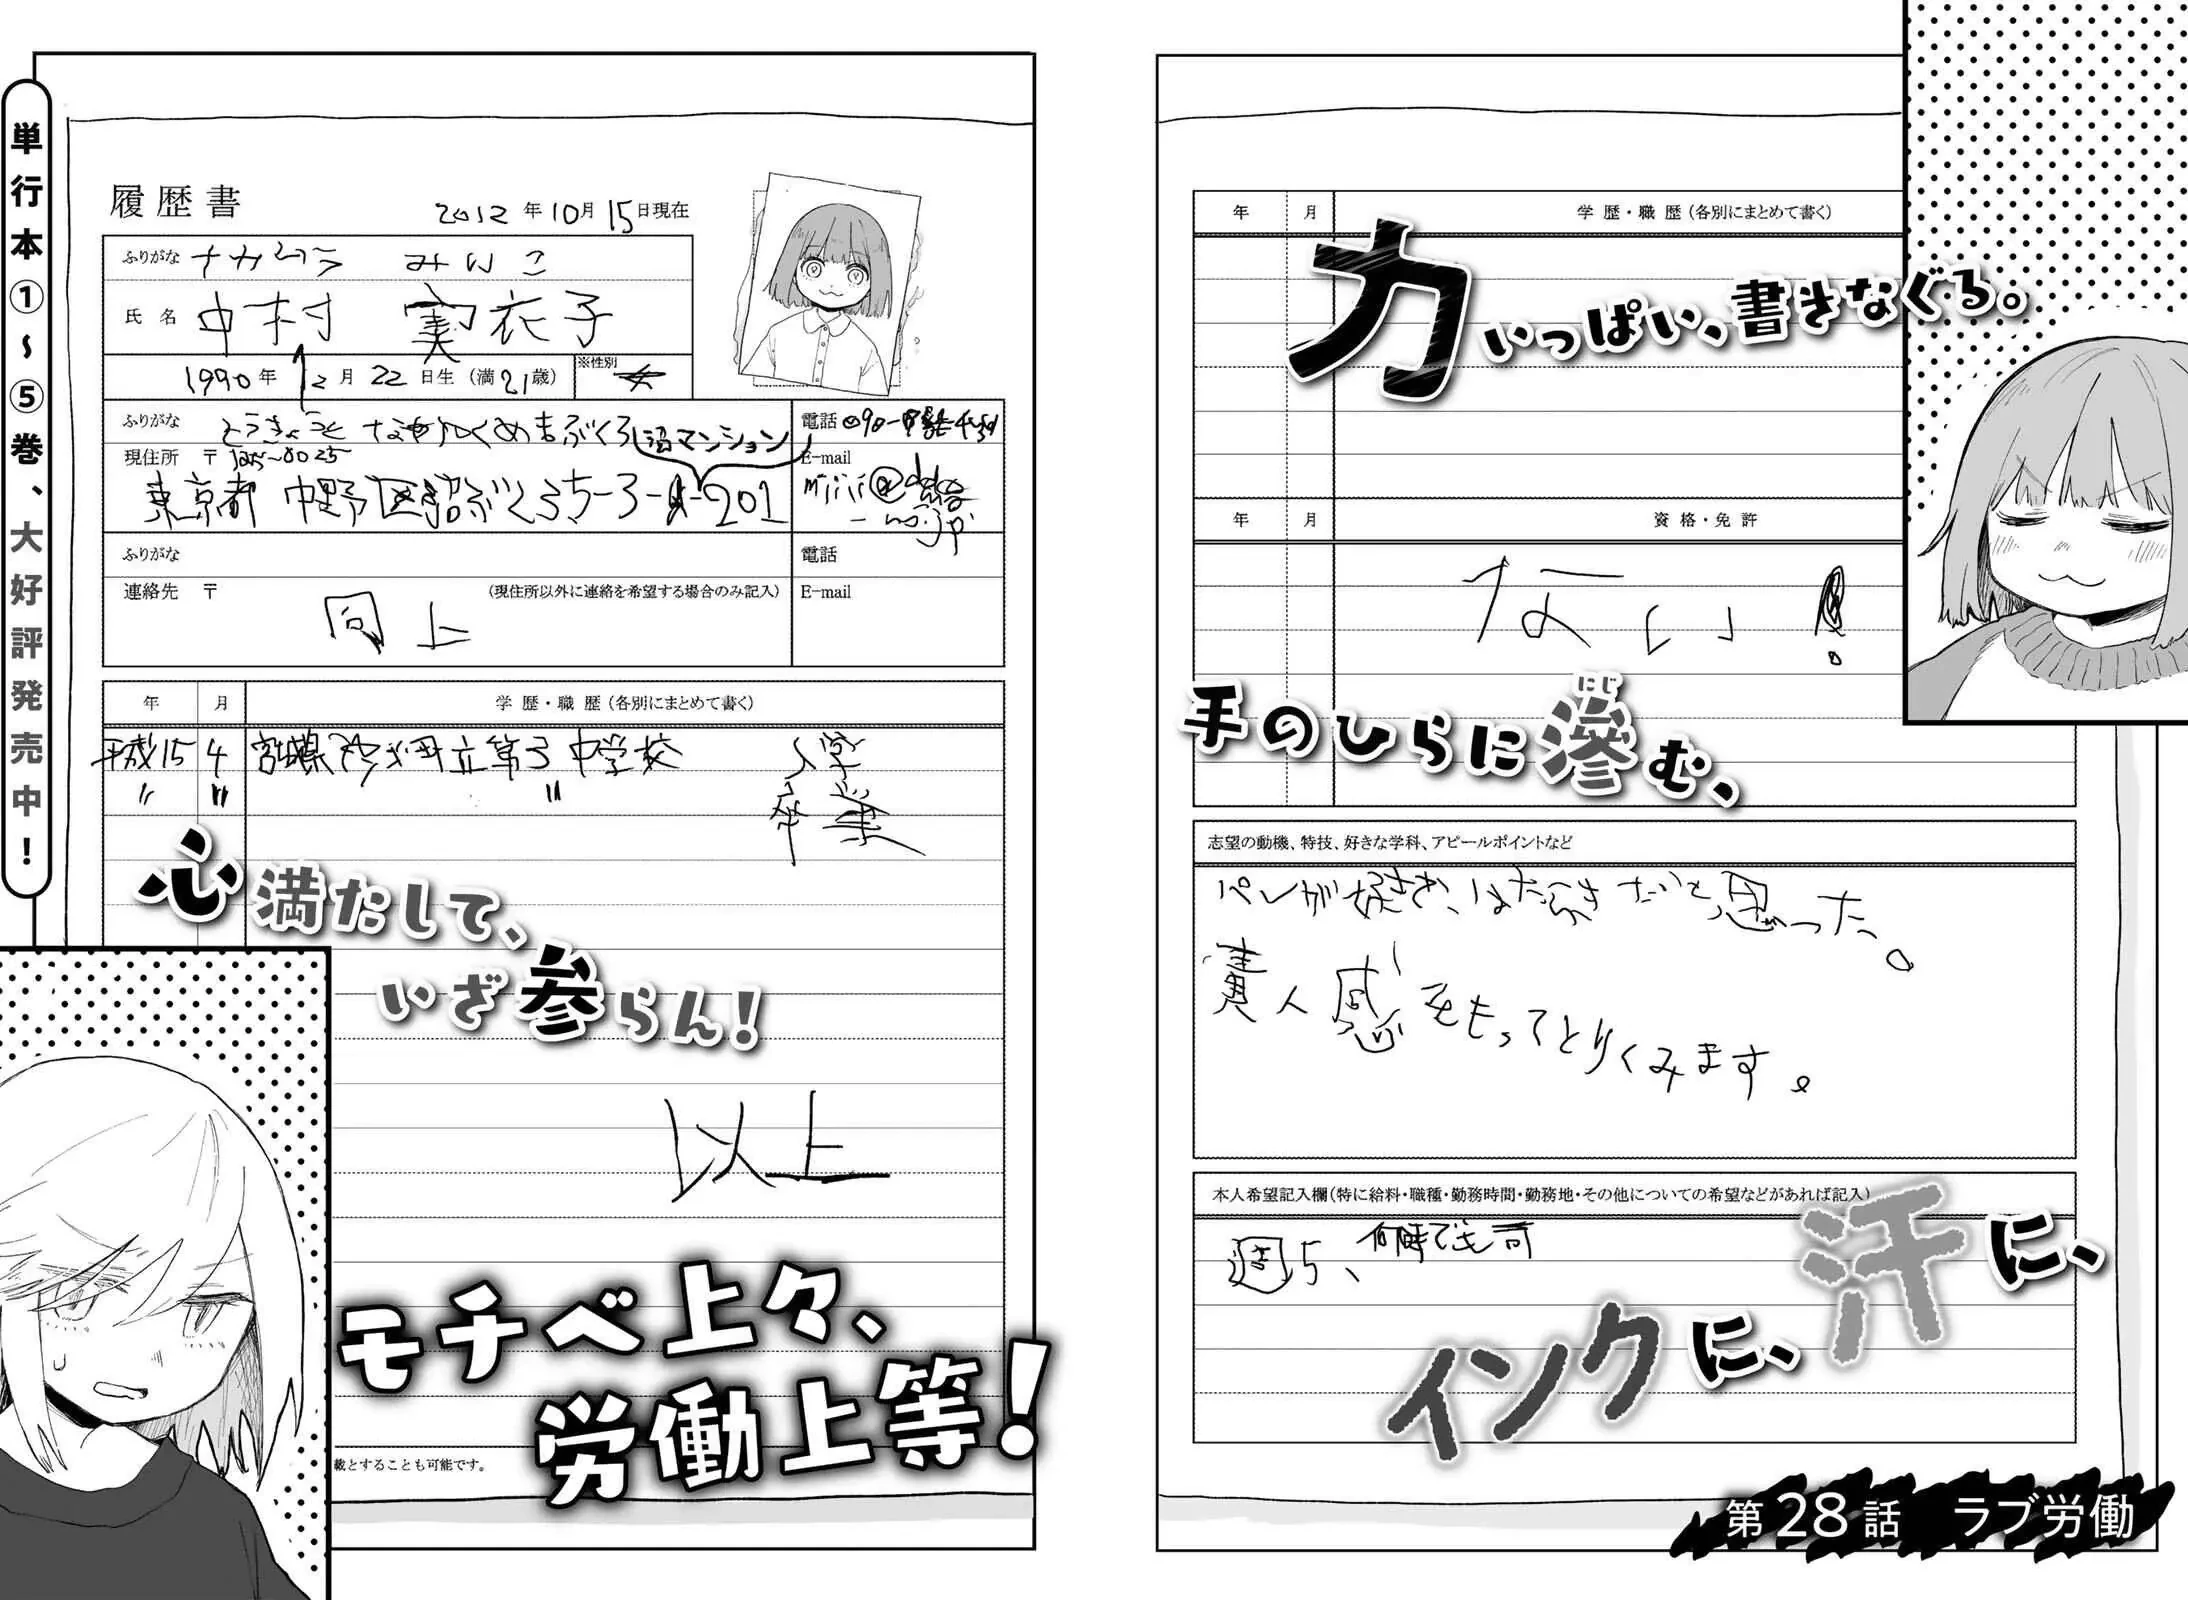 力いっぱい、書きなぐる。
手のひらに滲む、
にじ
インクに、汗に、
第28話 ラブ労働
年 月 学歴・職歴(各別にまとめて書く)
年 月 資格・免許
ない!
志望の動機、特技、好きな学科、アピールポイントなど
責人感をもってとりくみます。
本人希望記入欄(特に給料・職種・勤務時間・勤務地・その他についての希望などがあれば記入)
週5、何時でも可
履歴書
2012年10月15日現在
ふりがな ナカムラ みいこ
氏名 中村 実衣子
1990年12月22日生(満21歳)
※性別 女
ふりがな とうきょうと なかのくぬまぶくろ
沼マンション
電話
現住所 〒
E-mail
東京都 中野区沼ぶくろ
201
ふりがな
電話
連絡先 〒 (現住所以外に連絡を希望する場合のみ記入)
E-mail
同上
年 月 学歴・職歴(各別にまとめて書く)
平成15 4 宮城県 町立第3中学校 入学
〃 〃 〃 卒業
以上
載とすることも可能です。
心満たして、
いざ参らん!
モチベ上々、
労働上等!
単行本①〜⑤巻、大好評発売中!